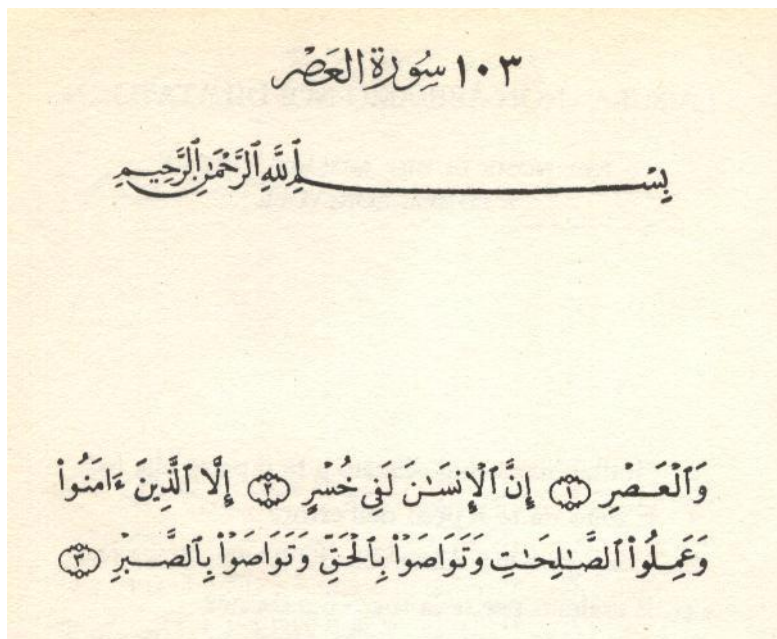 ١٠٣ سُورَةُ العَصْرِ
بِسْمِ ٱللَّهِ ٱلرَّحْمَٰنِ ٱلرَّحِيمِ
وَٱلْعَصْرِ ۝١ إِنَّ ٱلْإِنسَٰنَ لَفِى خُسْرٍ ۝٢ إِلَّا ٱلَّذِينَ ءَامَنُوا۟
وَعَمِلُوا۟ ٱلصَّٰلِحَٰتِ وَتَوَاصَوْا۟ بِٱلْحَقِّ وَتَوَاصَوْا۟ بِٱلصَّبْرِ ۝٣